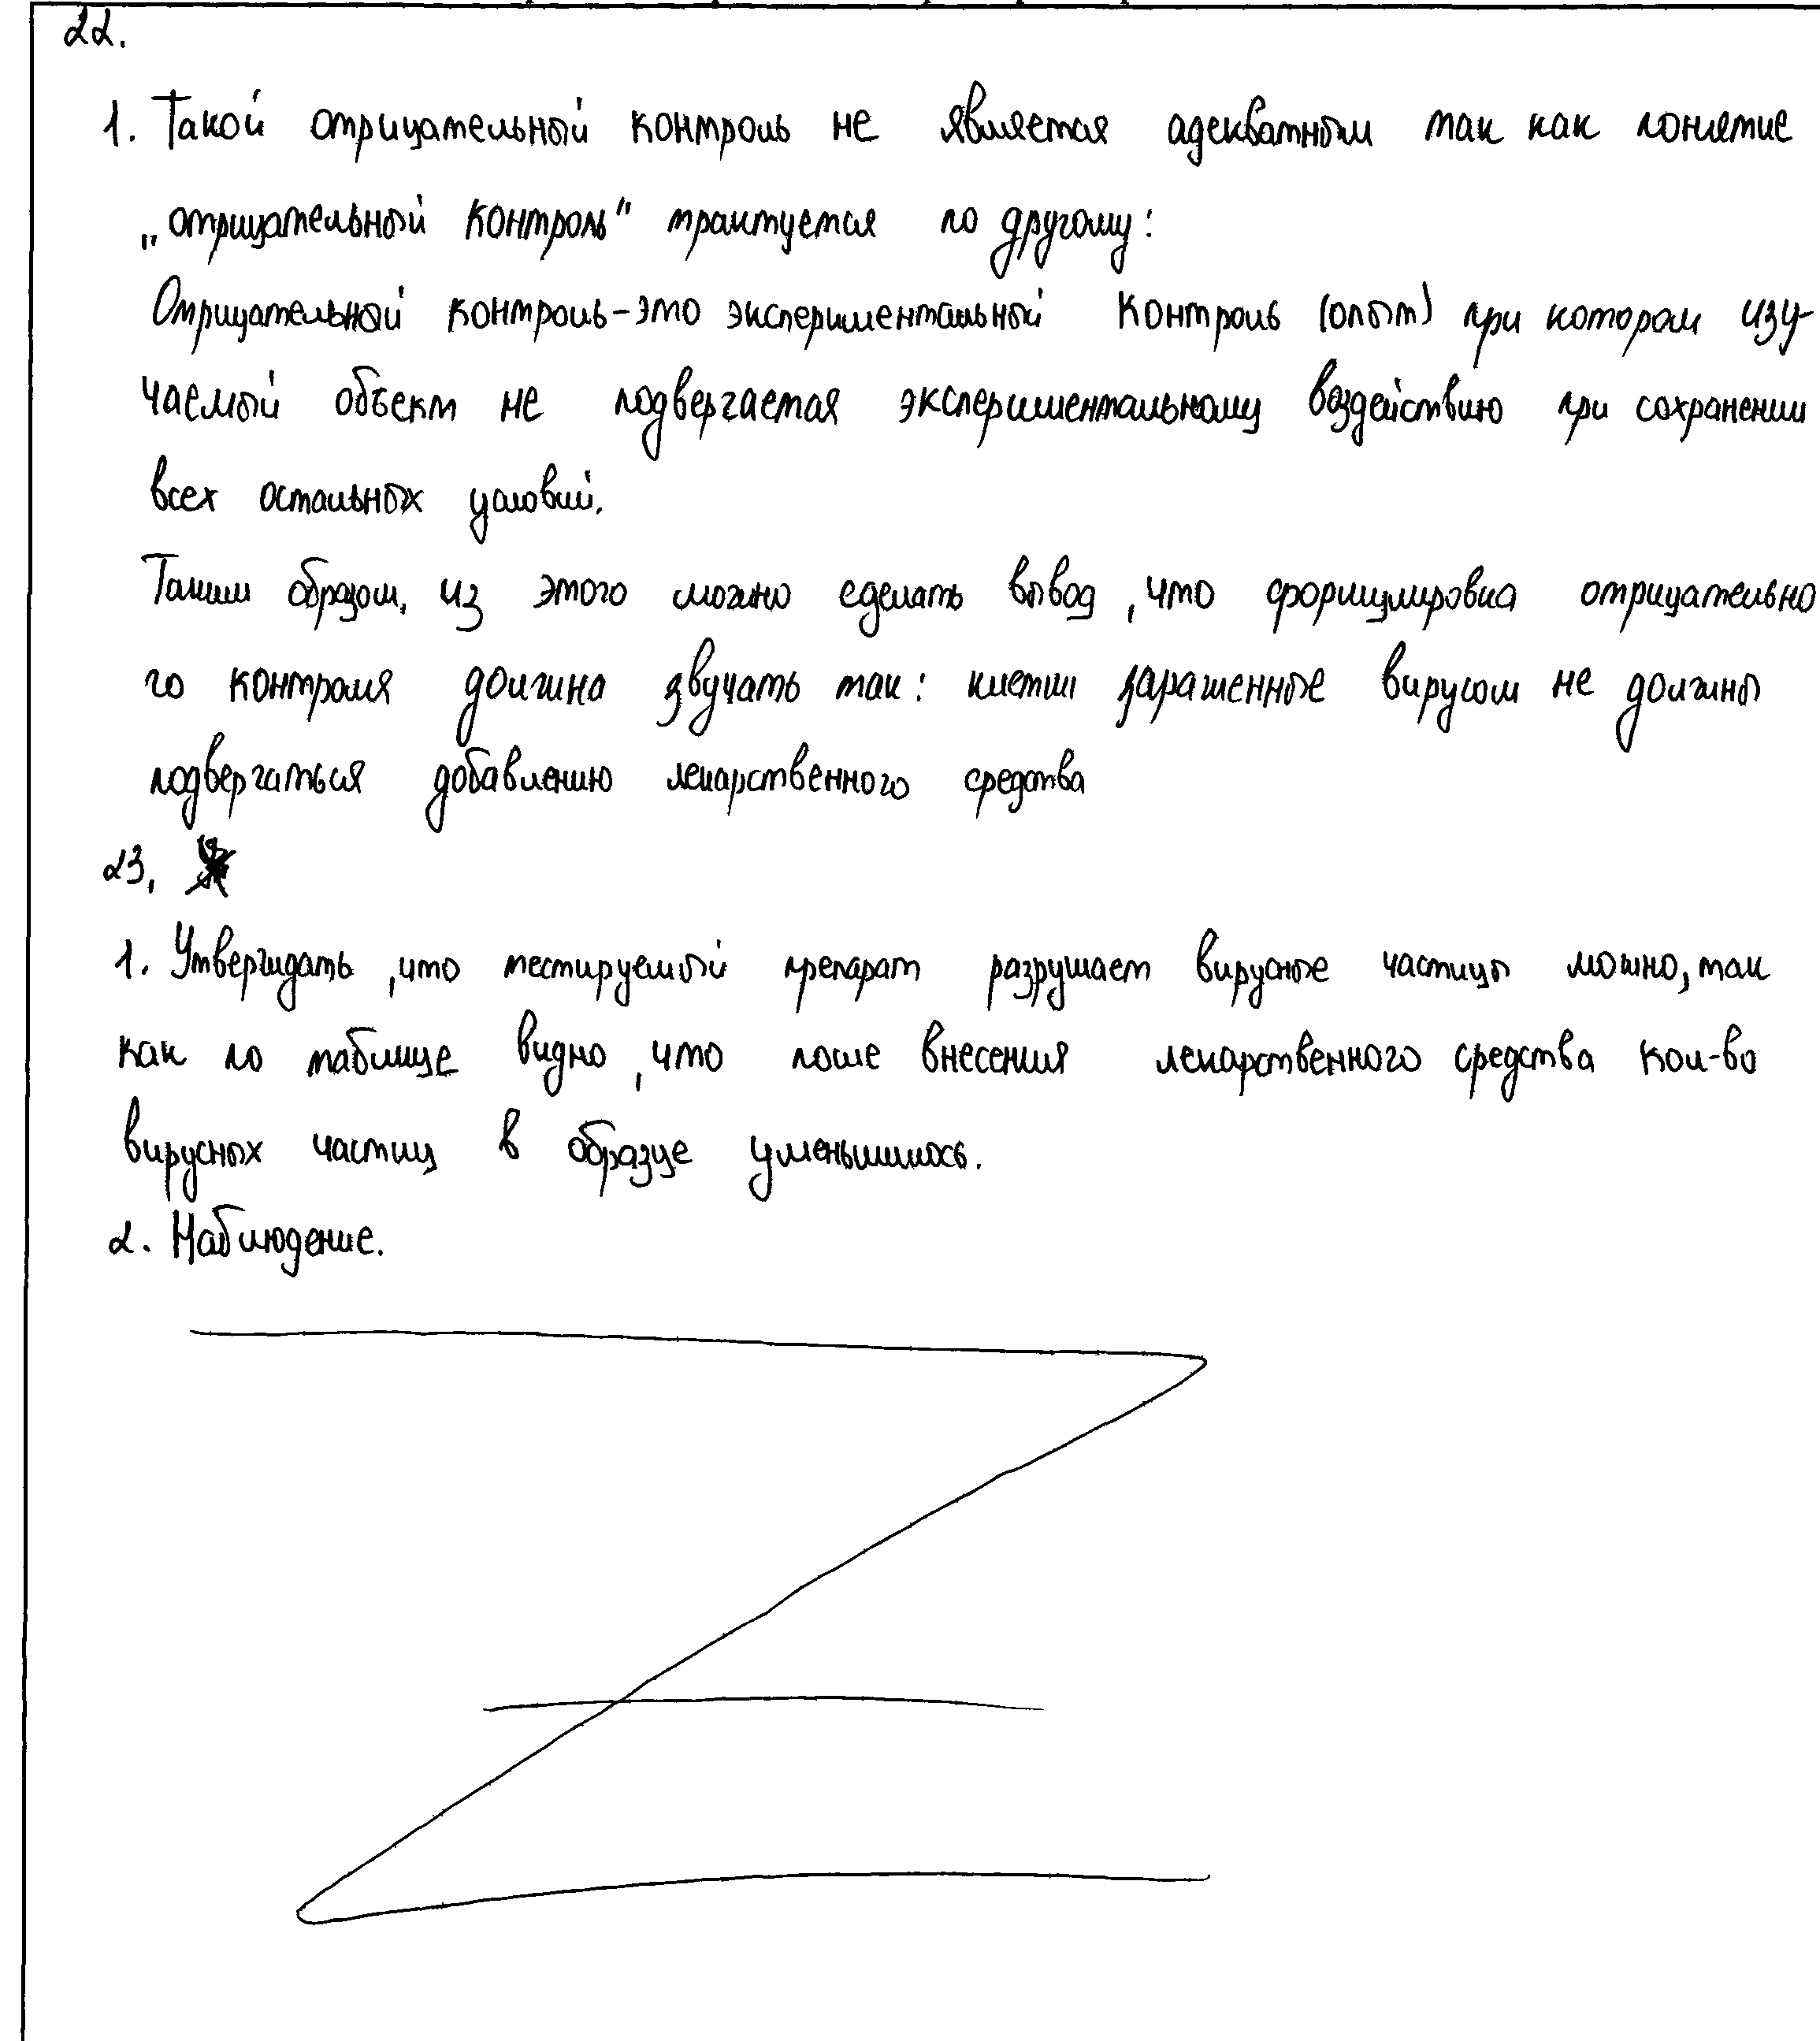 22.
1. Такой отрицательный контроль не является адекватным так как понятие
„отрицательный контроль" трактуется по другому:
Отрицательный контроль-это экспериментальный контроль (опыт) при котором изу-
чаемый объект не подвергается экспериментальному воздействию при сохранении
всех остальных условий.
Таким образом, из этого можно сделать вывод, что формулировка отрицательно
го контроля должна звучать так: клетки зараженные вирусом не должны
подвергаться добавлению лекарственного средства
23.
1. Утверждать, что тестируемый препарат разрушает вирусные частицы можно, так
как по таблице видно, что после внесения лекарственного средства кол-во
вирусных частиц в образце уменьшилось.
2. Наблюдение.